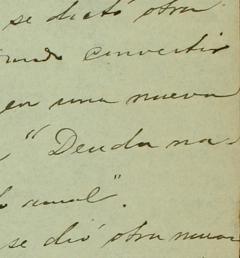 se dictó otra
convertir
en una nueva
"Deuda na-
se dió otra nueva